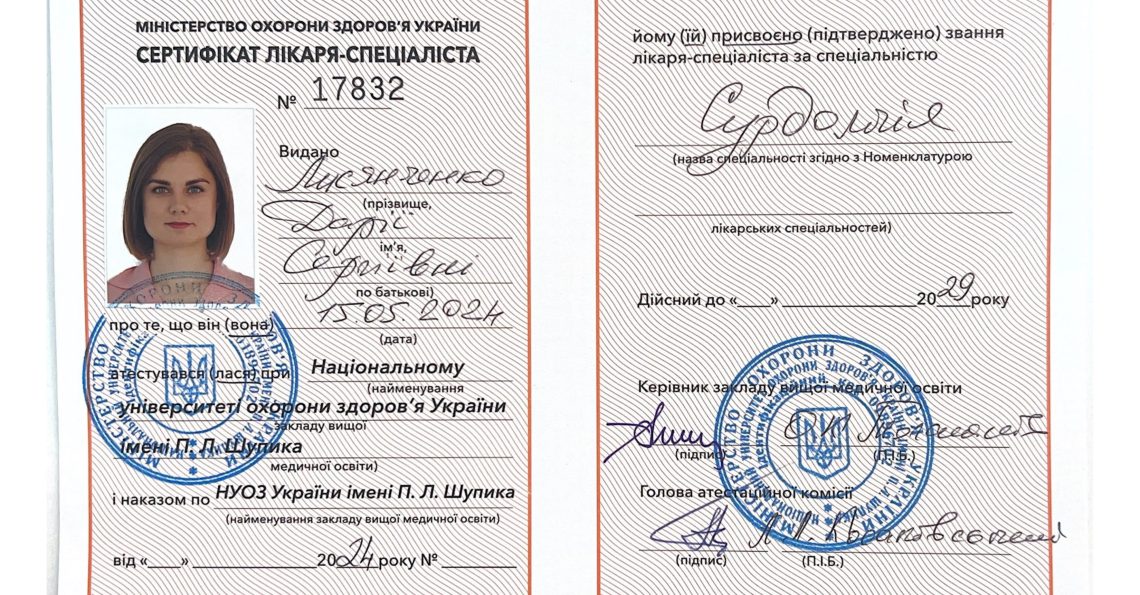 МІНІСТЕРСТВО ОХОРОНИ ЗДОРОВ'Я УКРАЇНИ
СЕРТИФІКАТ ЛІКАРЯ-СПЕЦІАЛІСТА
№ 17832
Видано
Лисянченко
(прізвище,
Дарії
ім'я,
Сергіївні
по батькові)
15.05.2024
(дата)
про те, що він (вона)
атестувався (лася) при Національному
(найменування
університеті охорони здоров’я України
закладу вищої
імені П. Л. Шупика
медичної освіти)
і наказом по НУОЗ України імені П. Л. Шупика
(найменування закладу вищої медичної освіти)
від «___» ____________ 2024 року № ________
йому (їй) присвоєно (підтверджено) звання
лікаря-спеціаліста за спеціальністю
Сурдологія
(назва спеціальності згідно з Номенклатурою
лікарських спеціальностей)
Дійсний до «____» ____________ 2029 року
Керівник закладу вищої медичної освіти
(підпис) (П.І.Б.)
Голова атестаційної комісії
(підпис) (П.І.Б.)
МІНІСТЕРСТВО ОХОРОНИ ЗДОРОВ'Я УКРАЇНИ